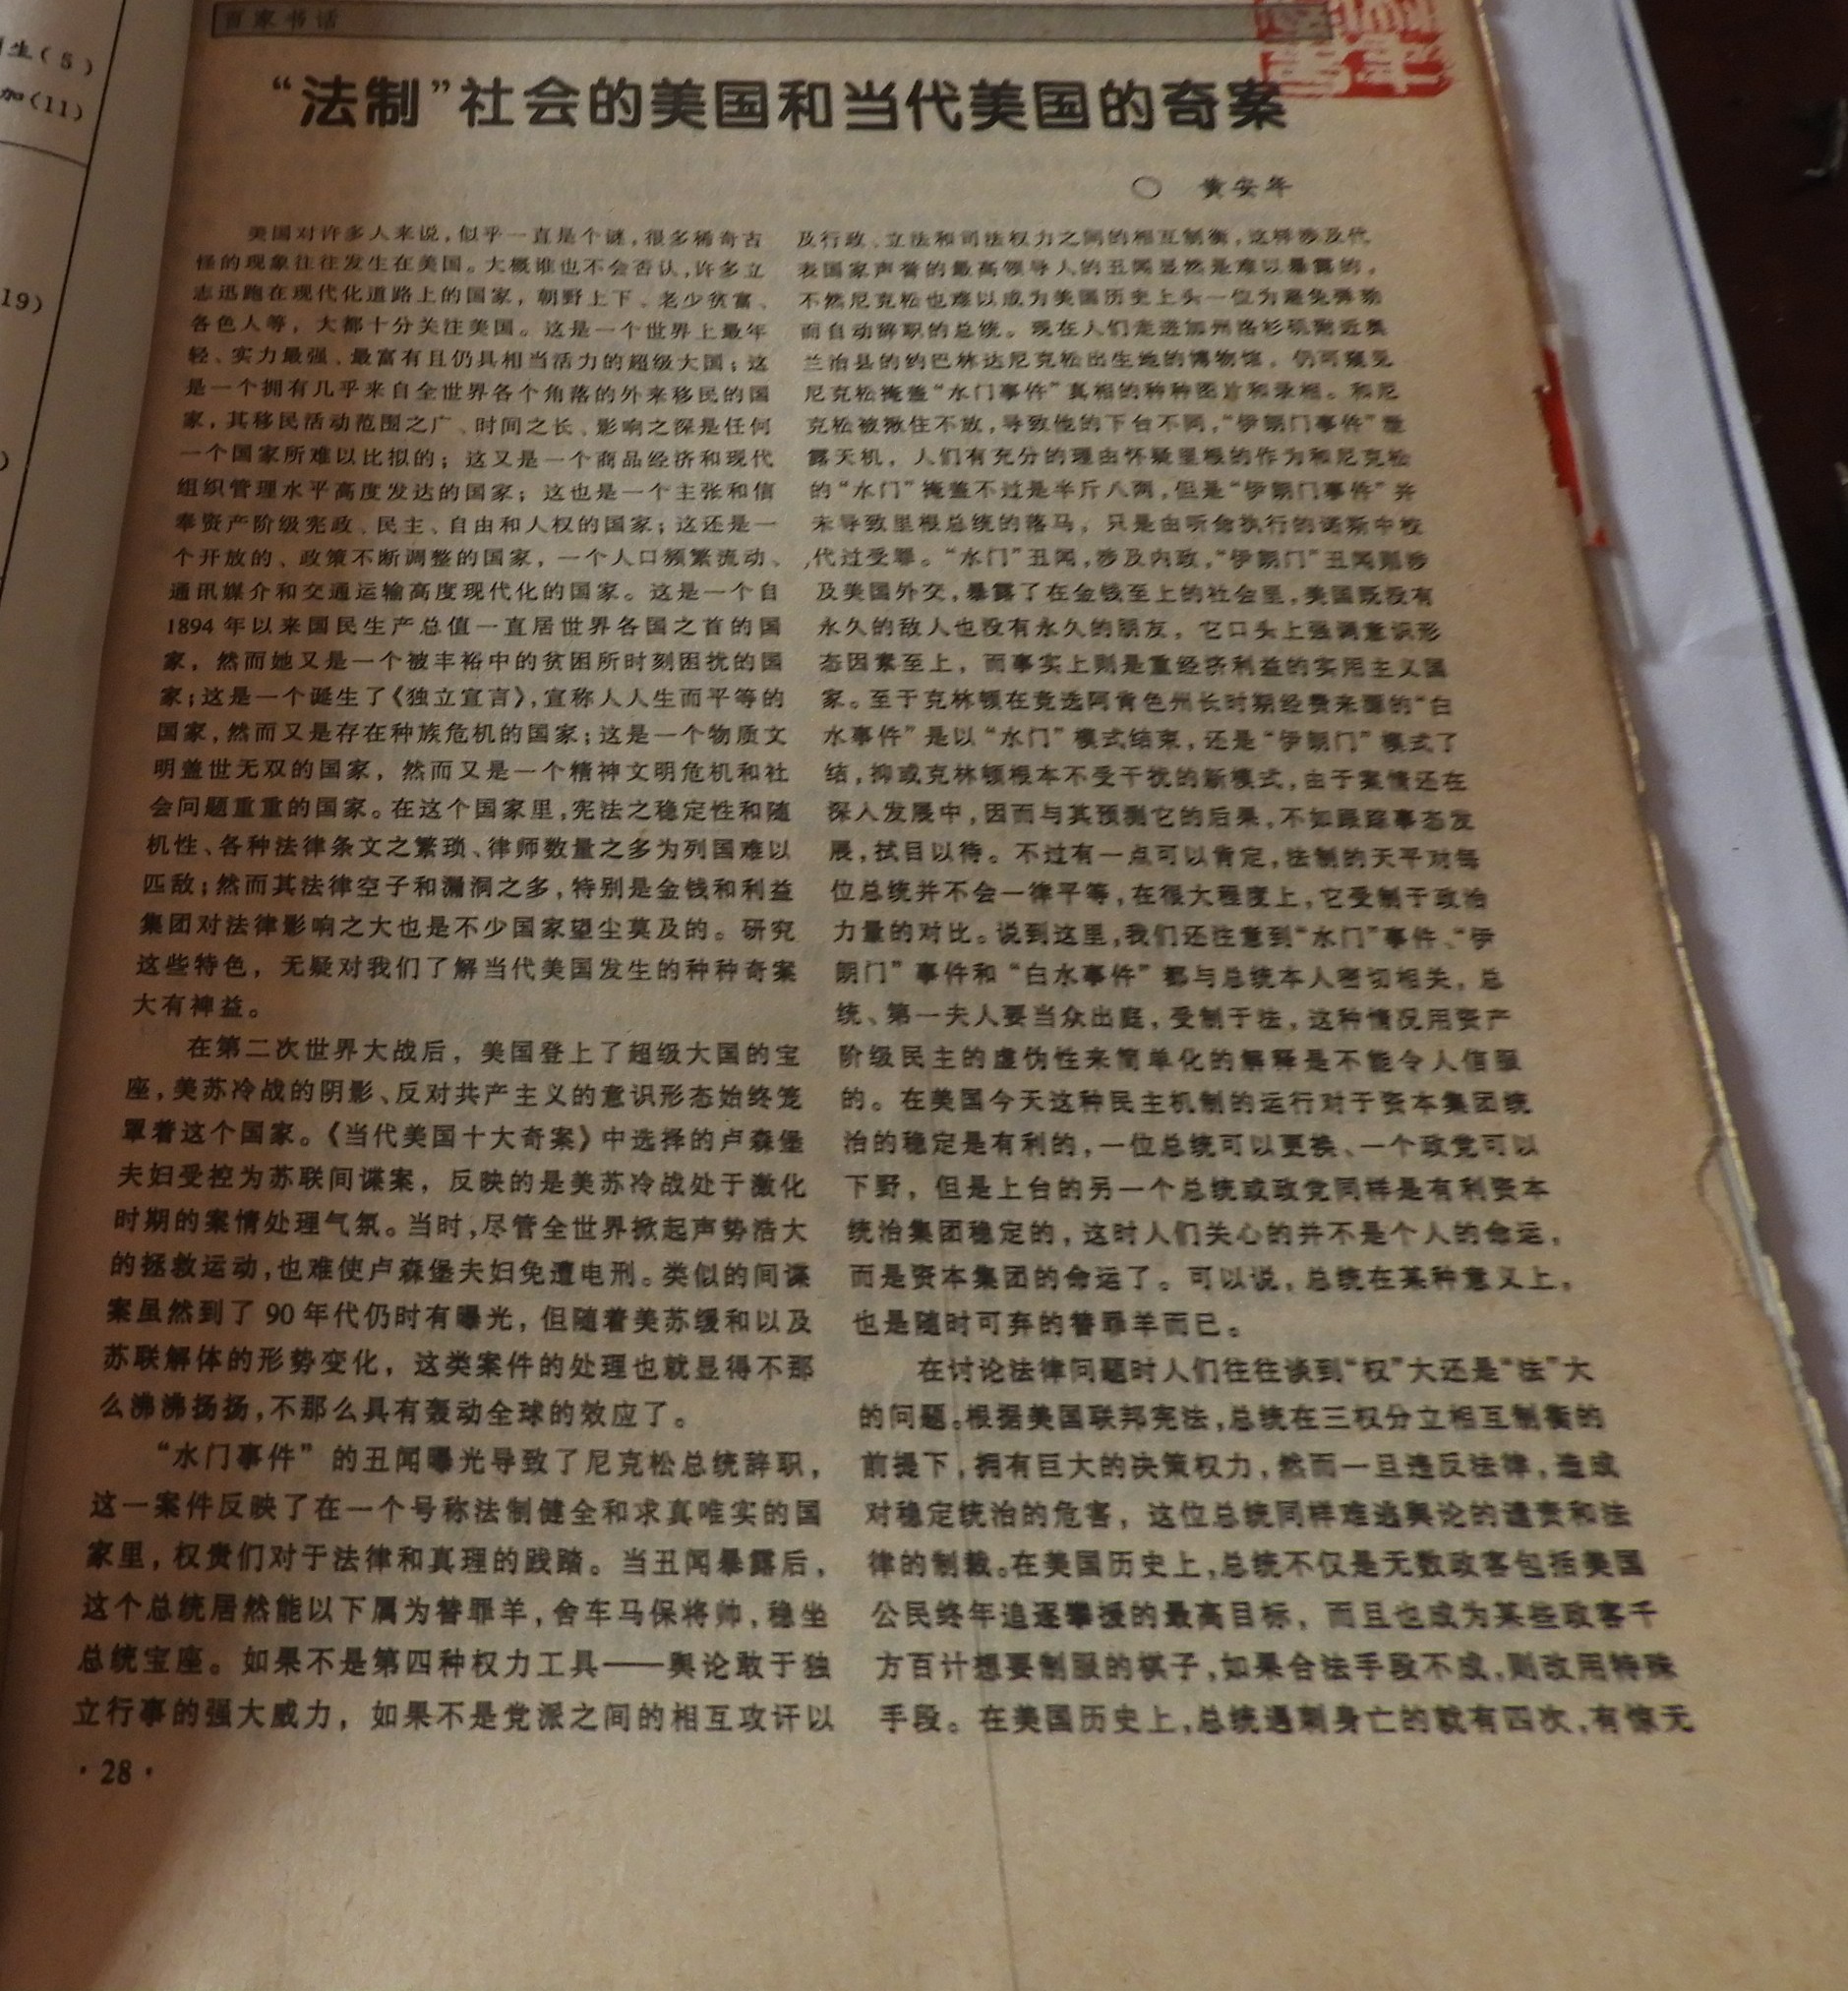 生(5)
加(11)
19)
百家书话
“法制”社会的美国和当代美国的奇案
○ 黄安年
美国对许多人来说,似乎一直是个谜,很多稀奇古
怪的现象往往发生在美国。大概谁也不会否认,许多立
志迅跑在现代化道路上的国家，朝野上下、老少贫富、
各色人等，大都十分关注美国。这是一个世界上最年
轻、实力最强、最富有且仍具相当活力的超级大国；这
是一个拥有几乎来自全世界各个角落的外来移民的国
家，其移民活动范围之广、时间之长、影响之深是任何
一个国家所难以比拟的；这又是一个商品经济和现代
组织管理水平高度发达的国家；这也是一个主张和信
奉资产阶级宪政、民主、自由和人权的国家；这还是一
个开放的、政策不断调整的国家，一个人口频繁流动、
通讯媒介和交通运输高度现代化的国家。这是一个自
1894年以来国民生产总值一直居世界各国之首的国
家，然而她又是一个被丰裕中的贫困所时刻困扰的国
家;这是一个诞生了《独立宣言》,宣称人人生而平等的
国家,然而又是存在种族危机的国家;这是一个物质文
明盖世无双的国家，然而又是一个精神文明危机和社
会问题重重的国家。在这个国家里,宪法之稳定性和随
机性、各种法律条文之繁琐、律师数量之多为列国难以
匹敌;然而其法律空子和漏洞之多,特别是金钱和利益
集团对法律影响之大也是不少国家望尘莫及的。研究
这些特色，无疑对我们了解当代美国发生的种种奇案
大有裨益。
在第二次世界大战后，美国登上了超级大国的宝
座,美苏冷战的阴影、反对共产主义的意识形态始终笼
罩着这个国家。《当代美国十大奇案》中选择的卢森堡
夫妇受控为苏联间谍案，反映的是美苏冷战处于激化
时期的案情处理气氛。当时,尽管全世界掀起声势浩大
的拯救运动,也难使卢森堡夫妇免遭电刑。类似的间谍
案虽然到了90年代仍时有曝光，但随着美苏缓和以及
苏联解体的形势变化，这类案件的处理也就显得不那
么沸沸扬扬,不那么具有轰动全球的效应了。
“水门事件”的丑闻曝光导致了尼克松总统辞职，
这一案件反映了在一个号称法制健全和求真唯实的国
家里，权贵们对于法律和真理的践踏。当丑闻暴露后，
这个总统居然能以下属为替罪羊,舍车马保将帅,稳坐
总统宝座。如果不是第四种权力工具——舆论敢于独
立行事的强大威力，如果不是党派之间的相互攻讦以
·28·
及行政、立法和司法权力之间的相互制衡,这样涉及代
表国家声誉的最高领导人的丑闻显然是难以暴露的，
不然尼克松也难以成为美国历史上头一位为避免弹劾
而自动辞职的总统。现在人们走进加州洛杉矶附近奥
兰治县的约巴林达尼克松出生地的博物馆，仍可窥见
尼克松掩盖“水门事件”真相的种种图片和录相。和尼
克松被揪住不放,导致他的下台不同,“伊朗门事件”泄
露天机，人们有充分的理由怀疑里根的作为和尼克松
的“水门”掩盖不过是半斤八两,但是“伊朗门事件”并
未导致里根总统的落马，只是由听命执行的诺斯中校
代过受罪。“水门”丑闻,涉及内政,“伊朗门”丑闻则涉
及美国外交,暴露了在金钱至上的社会里,美国既没有
永久的敌人也没有永久的朋友，它口头上强调意识形
态因素至上，而事实上则是重经济利益的实用主义国
家。至于克林顿在竞选阿肯色州长时期经费来源的“白
水事件”是以“水门”模式结束,还是“伊朗门”模式了
结,抑或克林顿根本不受干扰的新模式,由于案情还在
深入发展中,因而与其预测它的后果,不如跟踪事态发
展,拭目以待。不过有一点可以肯定,法制的天平对每
位总统并不会一律平等,在很大程度上,它受制于政治
力量的对比。说到这里,我们还注意到“水门”事件、“伊
朗门”事件和“白水事件”都与总统本人密切相关，总
统、第一夫人要当众出庭,受制于法,这种情况用资产
阶级民主的虚伪性来简单化的解释是不能令人信服
的。在美国今天这种民主机制的运行对于资本集团统
治的稳定是有利的,一位总统可以更换、一个政党可以
下野，但是上台的另一个总统或政党同样是有利资本
统治集团稳定的,这时人们关心的并不是个人的命运，
而是资本集团的命运了。可以说，总统在某种意义上，
也是随时可弃的替罪羊而已。
在讨论法律问题时人们往往谈到“权”大还是“法”大
的问题。根据美国联邦宪法,总统在三权分立相互制衡的
前提下,拥有巨大的决策权力,然而一旦违反法律,造成
对稳定统治的危害，这位总统同样难逃舆论的谴责和法
律的制裁。在美国历史上,总统不仅是无数政客包括美国
公民终年追逐攀援的最高目标，而且也成为某些政客千
方百计想要制服的棋子,如果合法手段不成,则改用特殊
手段。在美国历史上,总统遇刺身亡的就有四次,有惊无